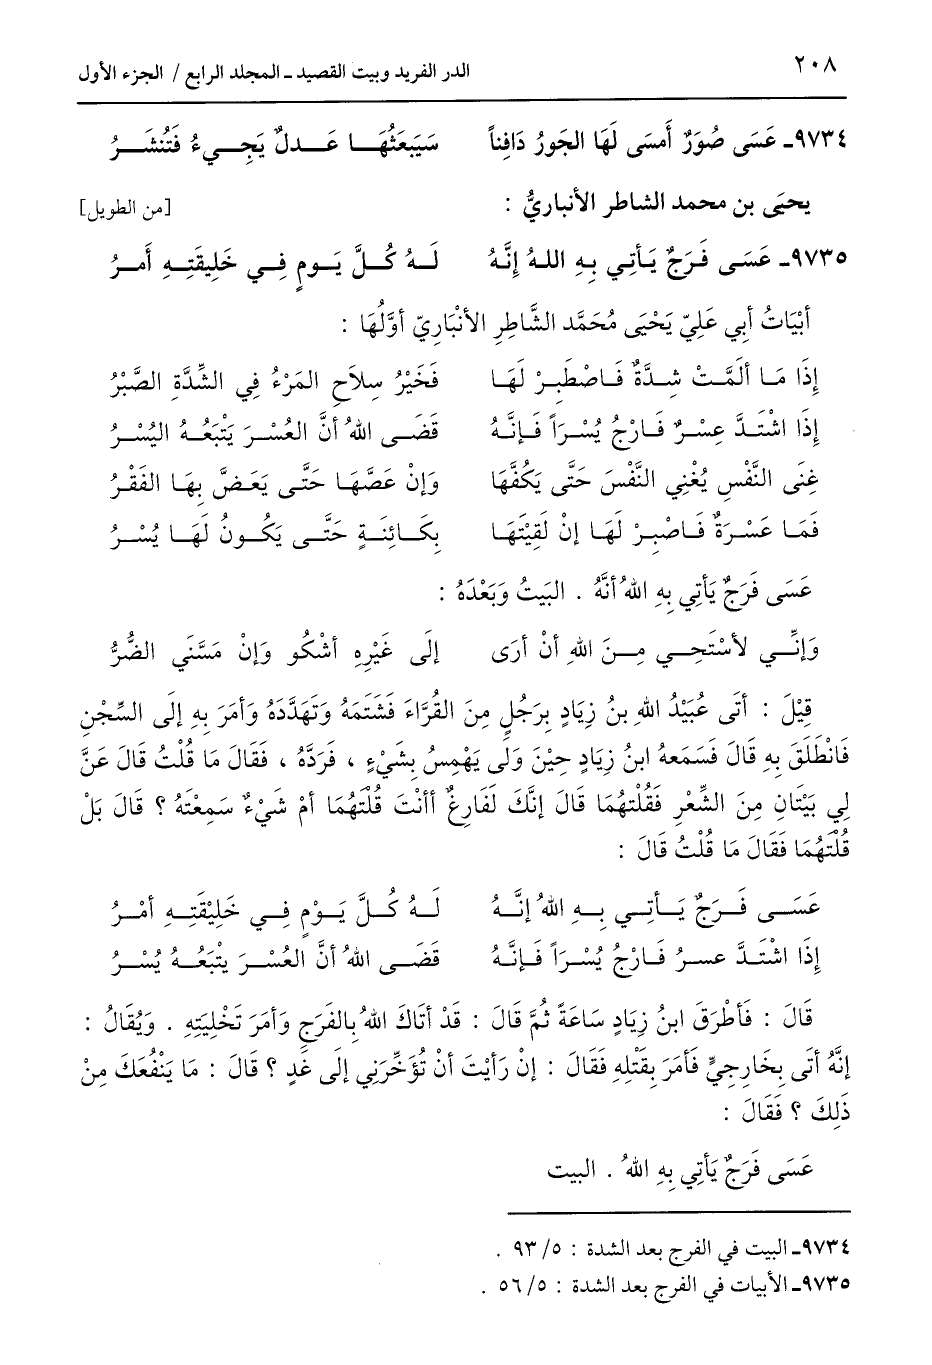 ٢٠٨ الدر الفريد وبيت القصيد ــ المجلد الرابع / الجزء الأول
٩٧٣٤ـ عَسَى صُوَرٌ أَمسَى لَهَا الجَورُ دَافِناً سَيَبعَثُهَا عَدلٌ يَجِيءُ فَتُنشَرُ
يحيَى بن محمد الشاطر الأنباريُّ : [من الطويل]
٩٧٣٥ـ عَسَى فَرَجٌ يَأتِي بِهِ اللهُ إِنَّهُ لَهُ كُلَّ يَومٍ فِي خَلِيقَتِهِ أَمرُ
أبْيَاتُ أبِي عَلِيّ يَحْيَى مُحَمَّد الشَّاطِرِ الأنْبَارِيّ أوَّلُهَا :
إِذَا مَا ألَمَّتْ شِدَّةٌ فَاصْطَبِرْ لَهَا فَخَيْرُ سِلاَحِ المَرْءُ فِي الشِّدَّةِ الصَّبْرُ
إِذَا اشْتَدَّ عِسْرٌ فَارْجُ يُسْرَاً فَإنَّهُ قَضَى اللهُ أنَّ العُسْرَ يَتْبَعُهُ اليُسْرُ
غِنَى النَّفْسِ يُغْنِي النَّفْسَ حَتَّى يَكُفَّهَا وَإنْ عَضَّهَا حَتَّى يَعَضَّ بِهَا الفَقْرُ
فَمَا عَسْرَةٌ فَاصْبِرْ لَهَا إنْ لَقِيْتَهَا بِكَائِنَةٍ حَتَّى يَكُونُ لَهَا يُسْرُ
عَسَى فَرَجٌ يَأتِي بِهِ اللهُ أنَّهُ . البَيتُ وَبَعْدَهُ :
وَإنِّي لأسْتَحِي مِنَ اللهِ أنْ أرَى إلَى غَيْرِهِ أشْكُو وَإنْ مَسَّنَي الضُّرُّ
قِيْلَ : أتَى عُبَيْدُ اللهِ بنُ زِيَادٍ بِرَجُلٍ مِنَ القُرَّاءَ فَشَتَمَهُ وَتَهَدَّدَهُ وَأمَرَ بِهِ إلَى السِّجْنِ
فَانْطَلَقَ بِهِ قَالَ فَسَمَعهُ ابنُ زِيَادٍ حِيْنَ وَلَى يَهْمِسُ بِشَيْءٍ ، فَرَدَّهُ ، فَقَالَ مَا قُلْتُ قَالَ عَنَّ
لِي بَيْتَانِ مِنَ الشِّعْرِ فَقُلْتهُمَا قَالَ إنَّكَ لَفَارِغٌ أأنْتَ قُلْتَهُمَا أمْ شَيْءٌ سَمِعْتَهُ ؟ قَالَ بَلْ
قُلْتَهُمَا فَقَالَ مَا قُلْتُ قَالَ :
عَسَى فَرَجٌ يَأتِي بِهِ اللهُ إنَّهُ لَهُ كُلَّ يَوْمٍ فِي خَلِيْقَتِهِ أمْرُ
إِذَا اشْتَدَّ عسرُ فَارْجُ يُسْرَاً فَإنَّهُ قَضَى اللهُ أنَّ العُسْرَ يتْبَعُهُ يُسْرُ
قَالَ : فَأطْرَقَ ابنُ زِيَادٍ سَاعَةً ثُمَّ قَالَ : قَدْ أتَاكَ اللهُ بِالفَرَجِ وَأمَرَ تَخْلِيَتِهِ . وَيُقَالُ :
إنَّهُ أتَى بِخَارِجِيٍّ فَأمَرَ بِقَتْلِهِ فَقَالَ : إنْ رَأيْتَ أنْ تُؤَخِّرَنِي إلَى غَدٍ ؟ قَالَ : مَا يَنْفُعَكَ مِنْ
ذَلِكَ ؟ فَقَالَ :
عَسَى فَرَجٌ يَأتِي بِهِ اللهُ . البيت
٩٧٣٤ـ البيت في الفرج بعد الشدة : ٥/ ٩٣ .
٩٧٣٥ـ الأبيات في الفرج بعد الشدة : ٥/ ٥٦ .